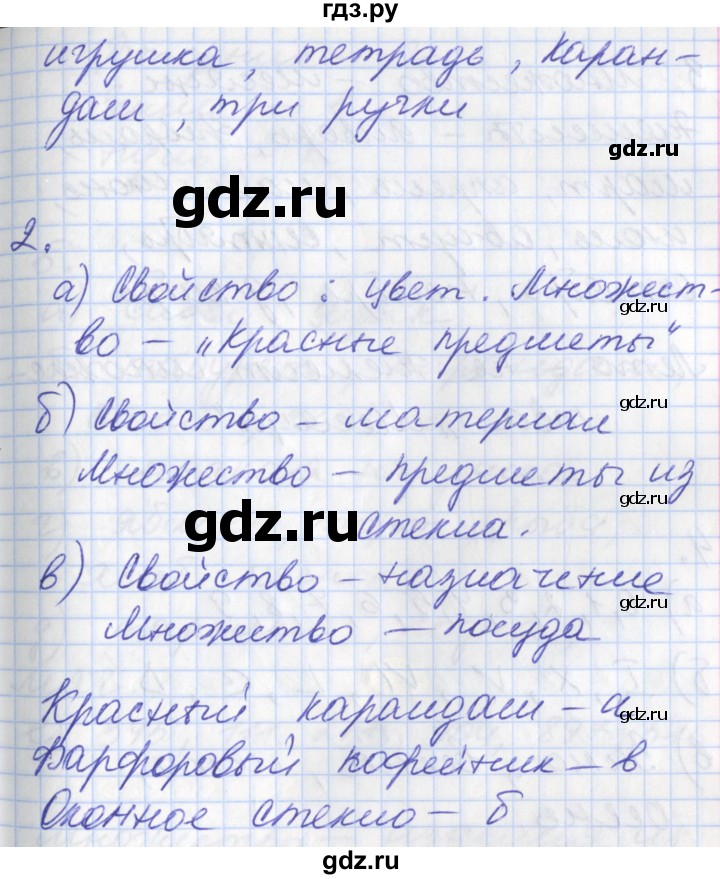 гдз.ру
игрушка, тетрадь, каран-
даш, три ручки
gdz.ru
gdz.ru
2.
а) Свойство: цвет. Множест-
gdz.ru
во – „Красные предметы"
gdz.ru
б) Свойство – материал
gdz.ru
Множество – предметы из
gdz.ru
gdz.ru
стекла.
в) Свойство – назначение
gdz.ru
Множество – посуда
Красный карандаш – а
gdz.ru
Фарфоровый кофейник – в
Оконное стекло – б
gdz.ru
gdz.ru